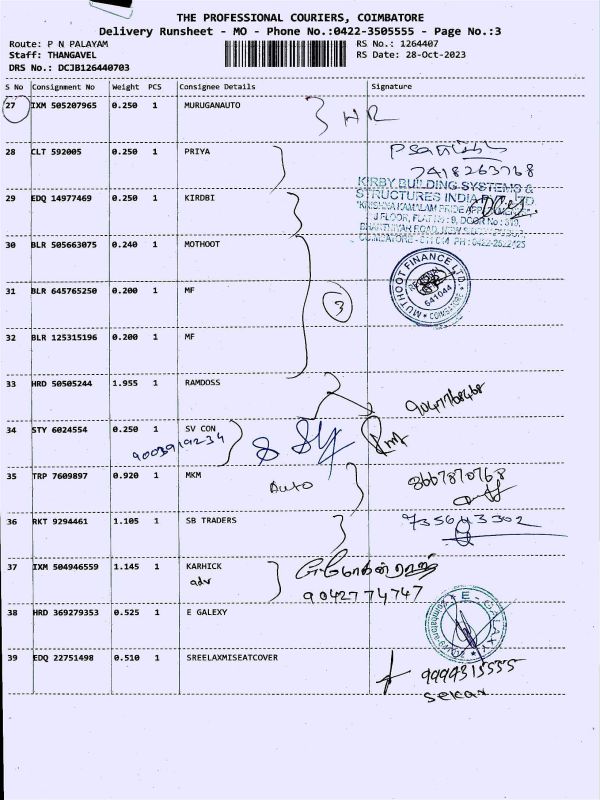 THE PROFESSIONAL COURIERS, COIMBATORE
Delivery Runsheet - MO - Phone No.:0422-3505555 - Page No.:3
Route: P N PALAYAM RS No.: 1264407
Staff: THANGAVEL RS Date: 28-Oct-2023
DRS No.: DCJB126440703
S No Consignment No Weight PCS Consignee Details Signature
27 IXM 505207965 0.250 1 MURUGANAUTO
HR
28 CLT 592005 0.250 1 PRIYA
7418263768
KIRBY BUILDING SYSTEMS &
STRUCTURES INDIA PVT. LTD
29 EDQ 14977469 0.250 1 KIRDBI
30 BLR 505663075 0.240 1 MOTHOOT
MUTHOOT FINANCE LTD.
641044
COIMBATORE
31 BLR 645765250 0.200 1 MF
3
32 BLR 125315196 0.200 1 MF
33 HRD 50505244 1.955 1 RAMDOSS
9047768468
34 STY 6024554 0.250 1 SV CON
9003919234
35 TRP 7609897 0.920 1 MKM
Auto
8667870768
36 RKT 9294461 1.105 1 SB TRADERS
735643302
37 IXM 504946559 1.145 1 KARHICK
adv
9042774747
38 HRD 369279353 0.525 1 E GALEXY
E-GALAXY
39 EDQ 22751498 0.510 1 SREELAXMISEATCOVER
9994315555
Sekar